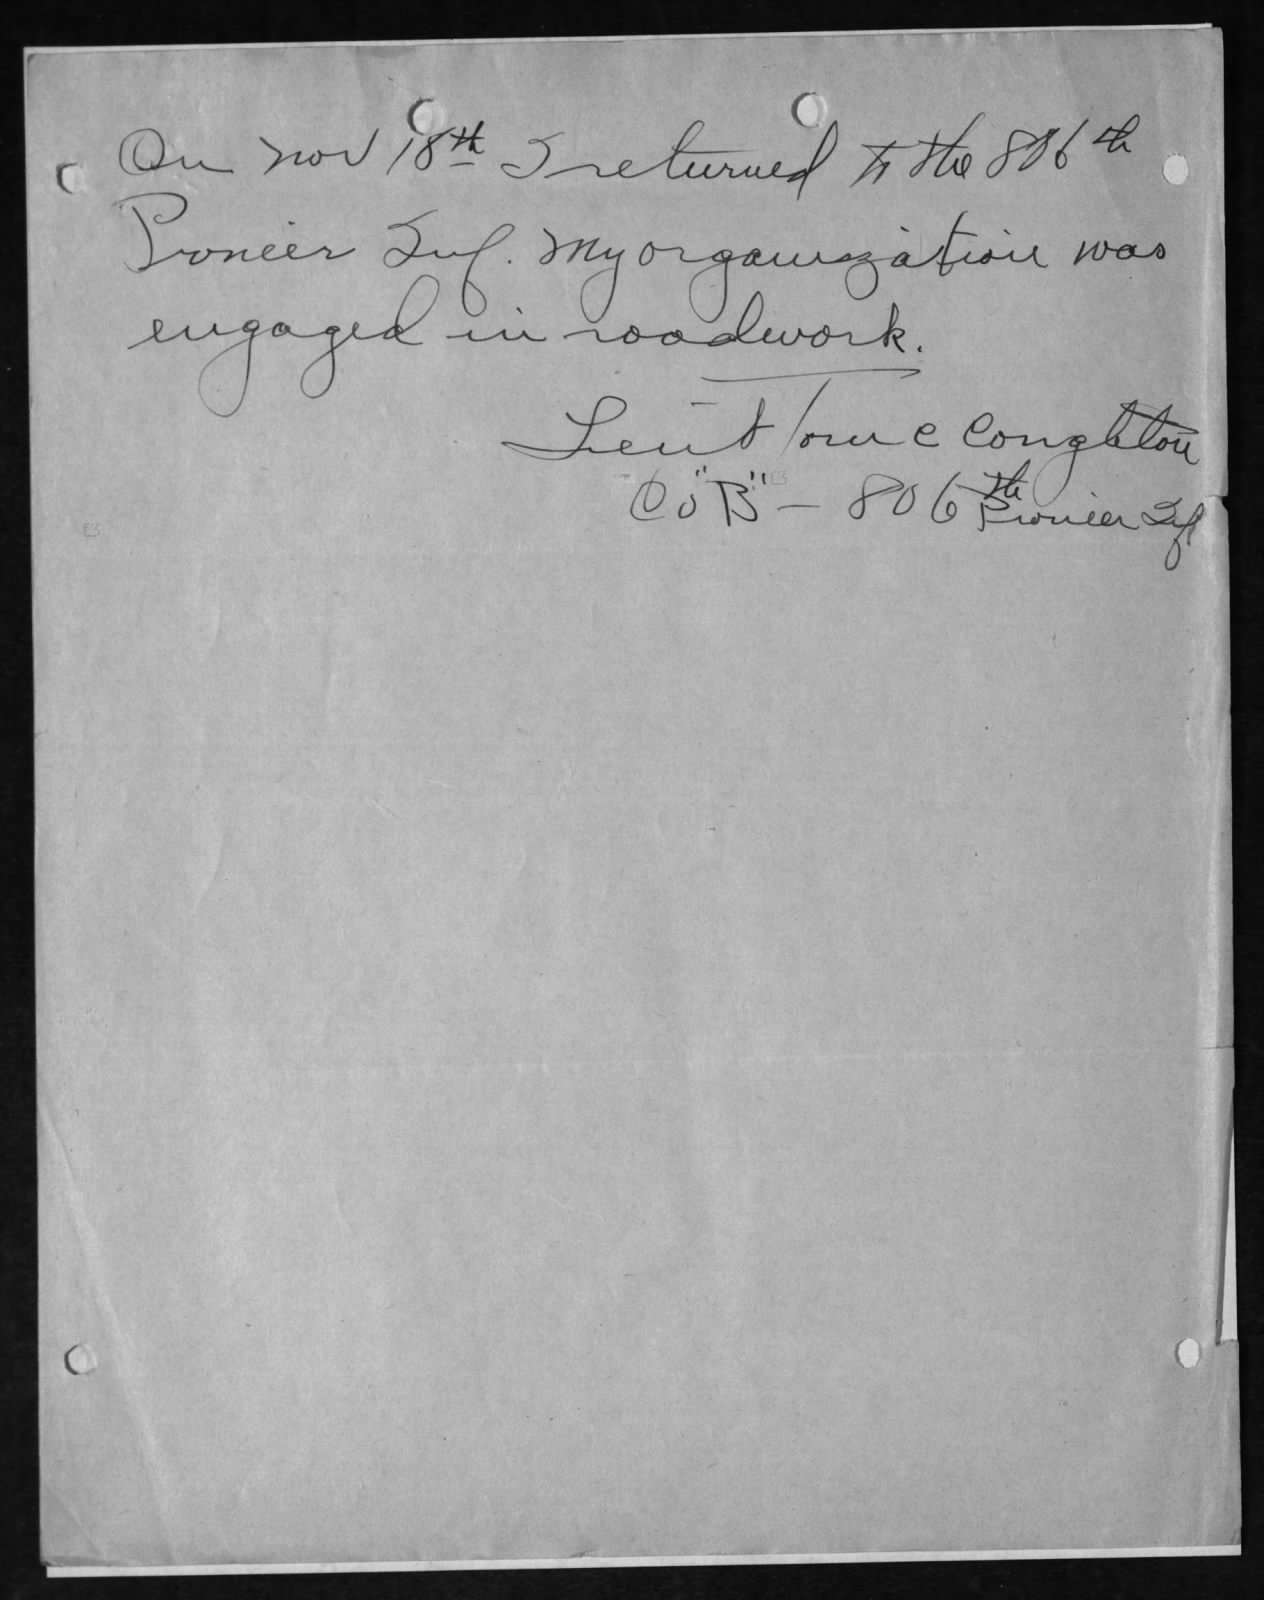 On Nov 18th I returned to the 806th
Pioneer Inf. My organization was
engaged in roadwork.
Leiut Tom C Congleton
Co "B" — 806th Pioneer Inf